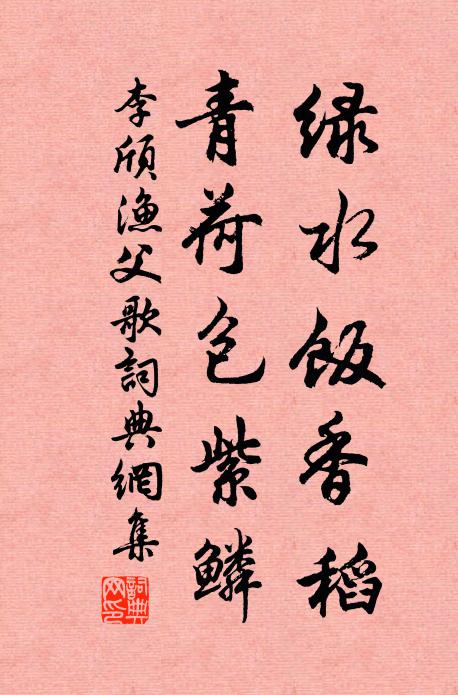 绿水饭香稻
青荷包紫鳞
李颀渔父歌詞典網集
詞典网印